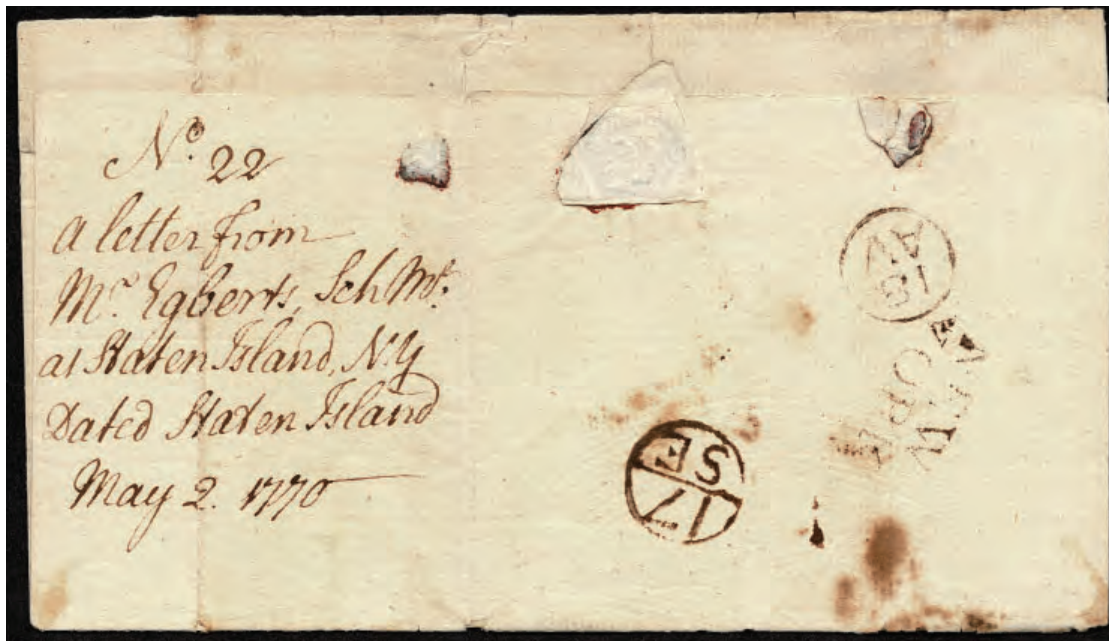 No. 22
A letter from
Mr. Egberts, Sch Mr.
at Staten Island, N.Y
Dated Staten Island
May 2. 1770
AV
NEW
SE
17